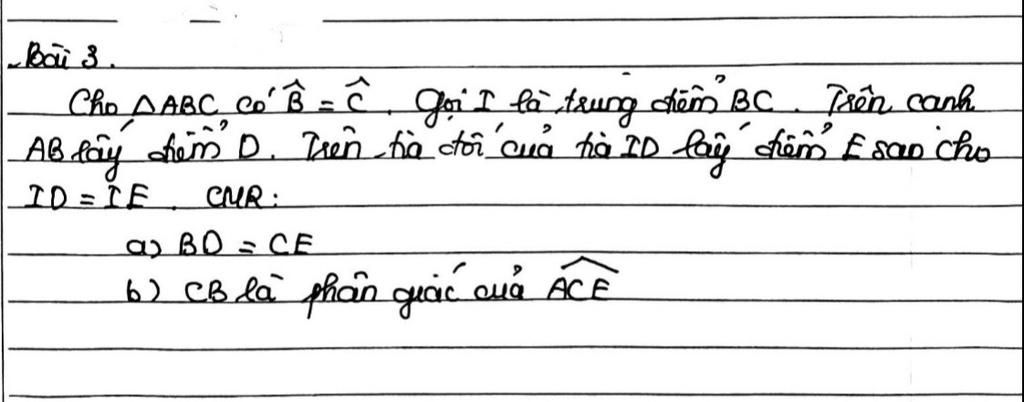 Bài 3.
Cho △ABC có B̂ = Ĉ. Gọi I là trung điểm BC. Trên cạnh
AB lấy điểm D. Trên tia đối của tia ID lấy điểm E sao cho
ID = IE. CMR:
a) BD = CE
b) CB là phân giác của ÂCE